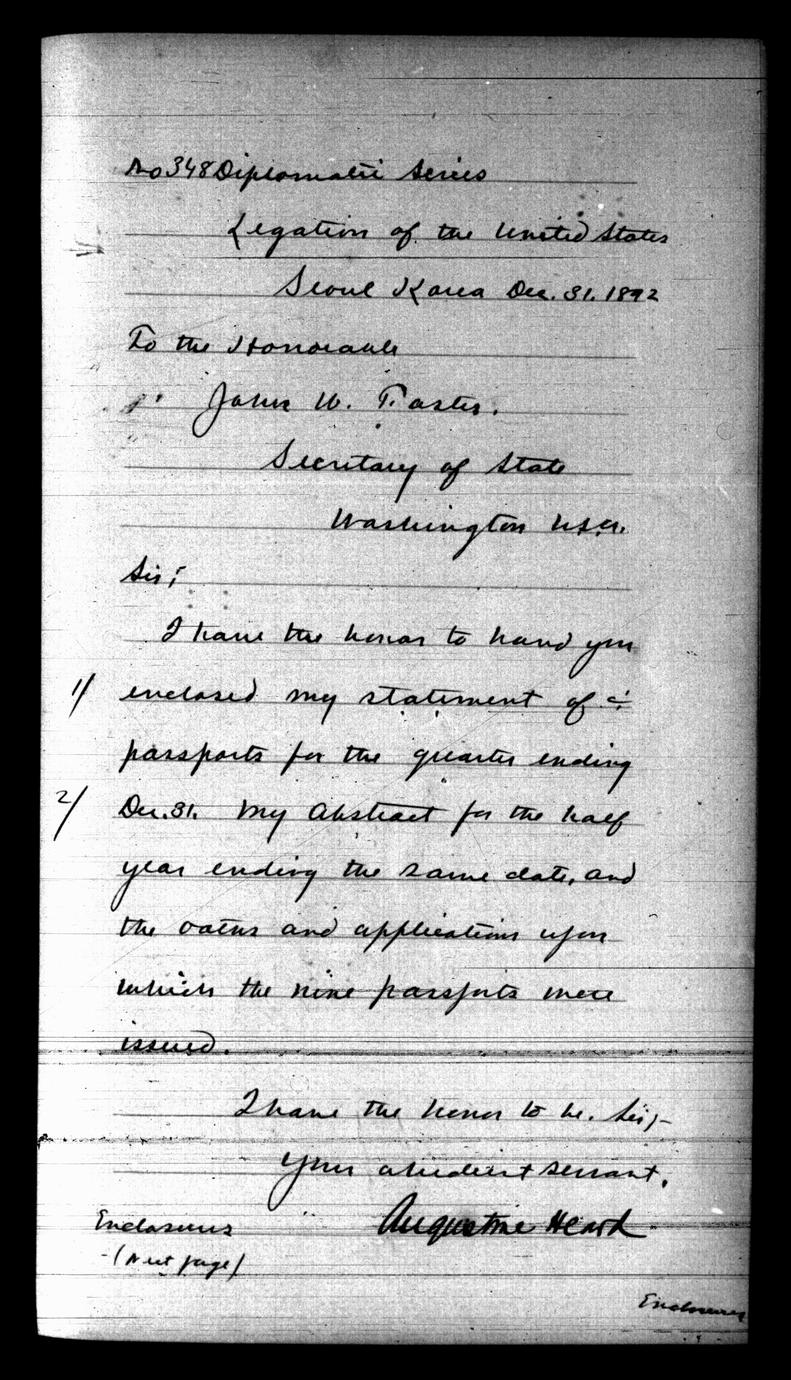 No 348 Diplomatic Series
Legation of the United States
Seoul Korea Dec. 31. 1892
To the Honorable
John W. Foster.
Secretary of State
Washington U.S.A.
Sir;
I have the honor to hand you
1/ enclosed my statement of
passports for the quarter ending
2/ Dec. 31. my Abstract for the half
year ending the same date, and
the oaths and applications upon
which the nine passports were
issued.
I have the honor to be. Sir;-
Your obedient servant.
Augustine Heard
Enclosures
-(Next page)
Enclosures